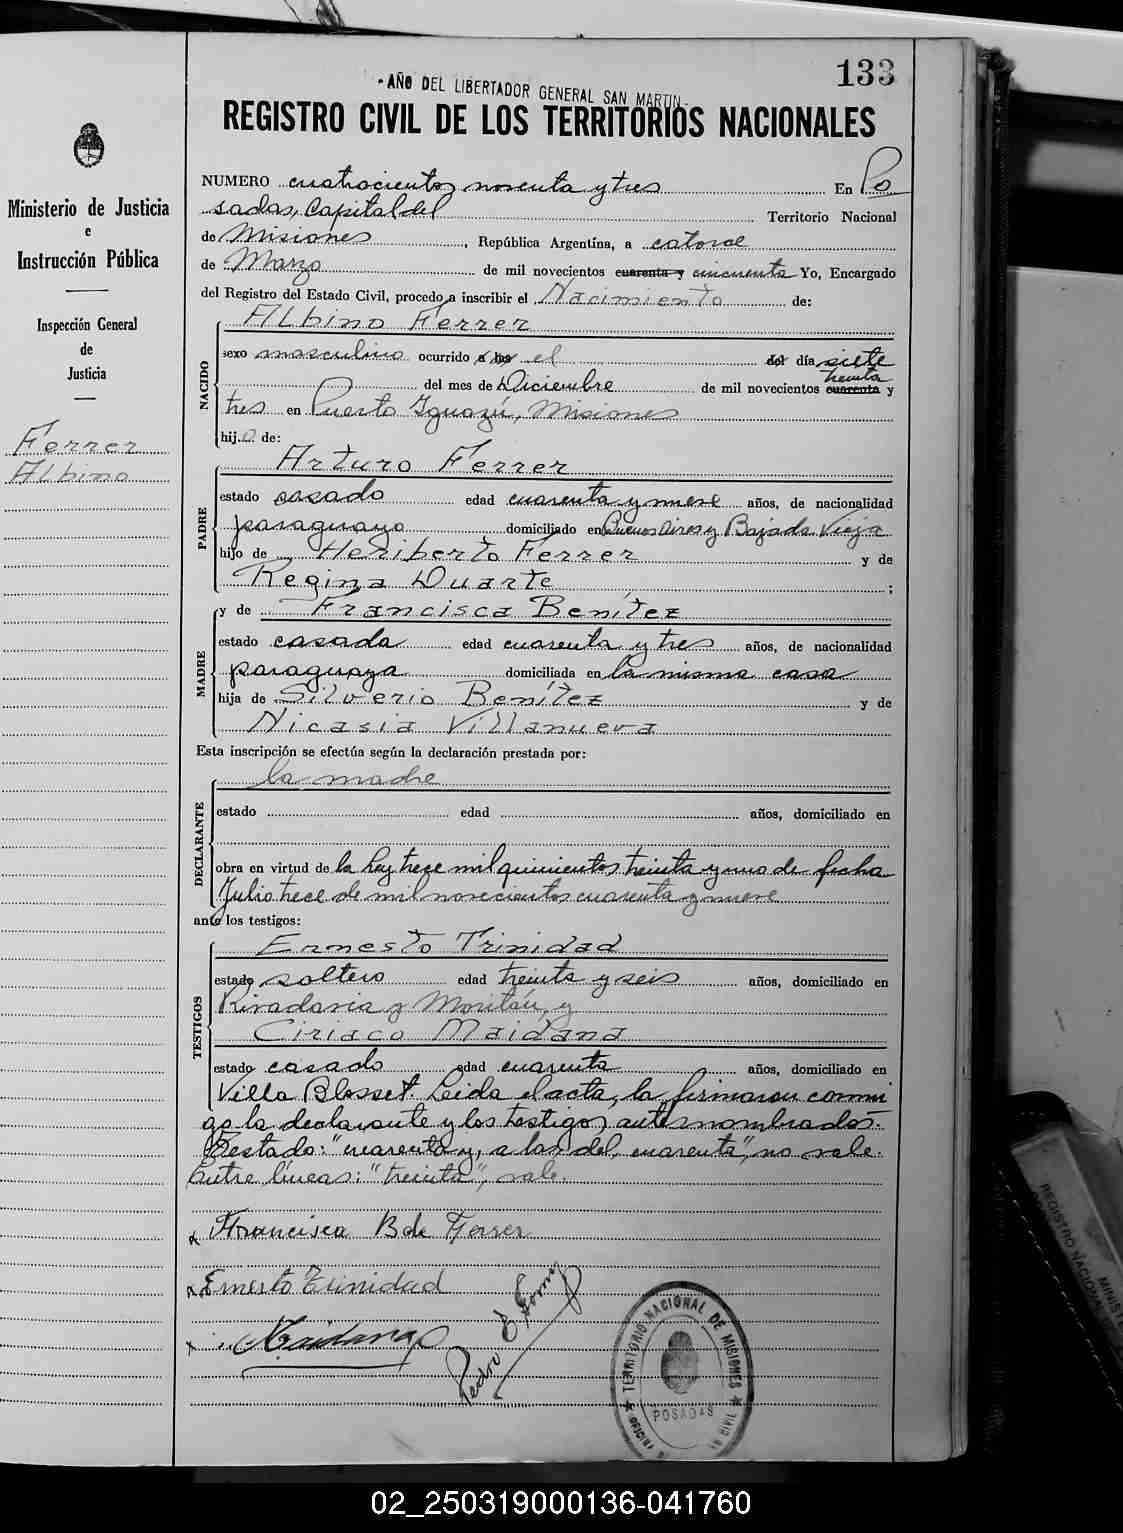 133
- AÑO DEL LIBERTADOR GENERAL SAN MARTIN -
REGISTRO CIVIL DE LOS TERRITORIOS NACIONALES
Ministerio de Justicia
e
Instrucción Pública
Inspección General
de
Justicia
Ferrer
Albino
NUMERO cuatrocientos noventa y tres En Po
sadas, Capital del Territorio Nacional
de Misiones, República Argentina, a catorce
de Marzo de mil novecientos cuarenta y cincuenta Yo, Encargado
del Registro del Estado Civil, procedo a inscribir el Nacimiento de:
Albino Ferrer
NACIDO
sexo masculino ocurrido a las el del día siete
treinta
del mes de Diciembre de mil novecientos cuarenta y
tres en Puerto Iguazú, Misiones
hijo de:
Arturo Ferrer
PADRE
estado casado edad cuarenta y nueve años, de nacionalidad
paraguayo domiciliado en Buenos Aires y Bajada Vieja
hijo de Heriberto Ferrer y de
Regina Duarte ;
y de Francisca Benítez
MADRE
estado casada edad cuarenta y tres años, de nacionalidad
paraguaya domiciliada en la misma casa
hija de Silverio Benítez y de
Nicasia Villanueva
Esta inscripción se efectúa según la declaración prestada por:
la madre
DECLARANTE
estado edad años, domiciliado en
obra en virtud de la Ley trece mil quinientos treinta y uno de fecha
Julio trece de mil novecientos cuarenta y nueve
ante los testigos:
Ernesto Trinidad
TESTIGOS
estado soltero edad treinta y seis años, domiciliado en
Rivadavia y y
Ciriaco Maidana
estado casado edad cuarenta años, domiciliado en
Villa Blosset. Leida el acta, la firmaron conmi
go la declarante y los testigos antes nombrados.-
Testado: "cuarenta y, a las del, cuarenta", no vale.
Entre líneas: "treinta", vale.
Francisca B de Ferrer
Ernesto Trinidad
Maidana
Pedro E
TERRITORIO NACIONAL DE MISIONES
POSADAS
02_250319000136-041760